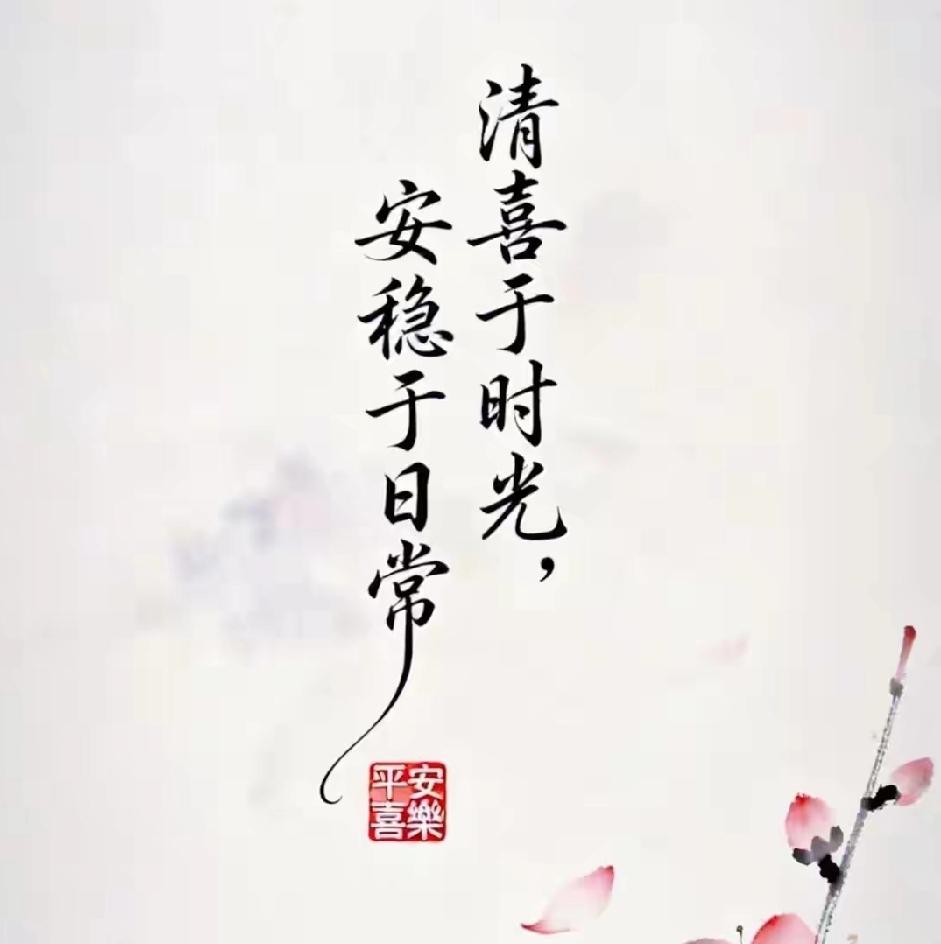 清喜于时光，
安稳于日常
安樂
平喜